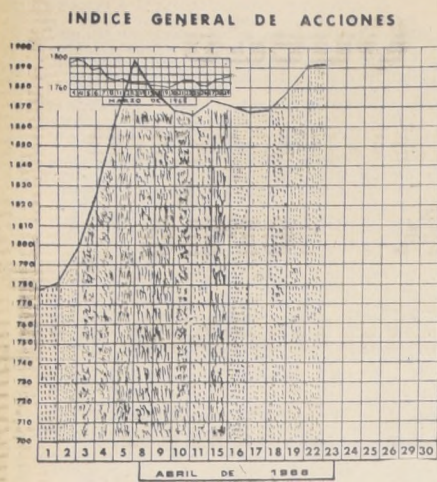 INDICE GENERAL DE ACCIONES
1900
1890
1880
1870
1860
1850
1840
1830
1820
1810
1800
1790
1780
1770
760
750
740
730
720
710
700
1800
1760
MARZO DE 1968
1 2 3 4 5 8 9 10 11 15 16 17 18 19 22 23 24 25 26 29 30
ABRIL DE 1968